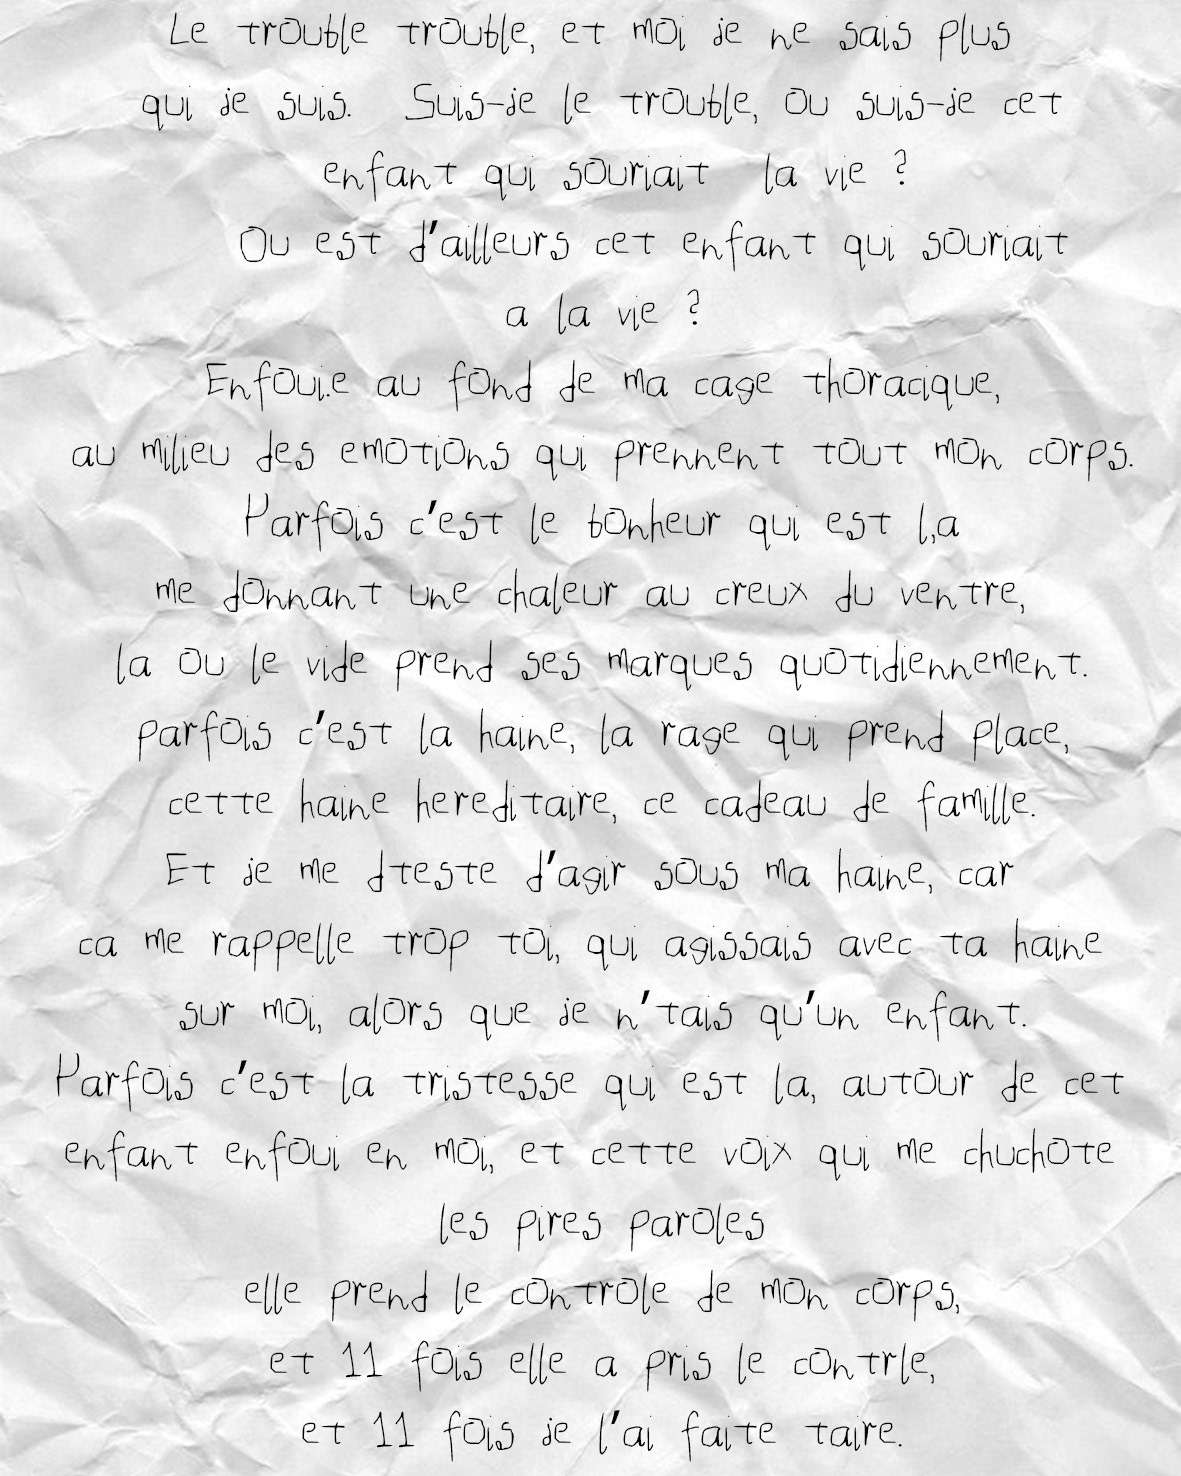 Le trouble trouble, et moi je ne sais plus
qui je suis. Suis-je le trouble, ou suis-je cet
enfant qui souriait la vie ?
Ou est d'ailleurs cet enfant qui souriait
a la vie ?
Enfoui.e au fond de ma cage thoracique,
au milieu des emotions qui prennent tout mon corps.
Parfois c'est le bonheur qui est l,a
me donnant une chaleur au creux du ventre,
la ou le vide prend ses marques quotidiennement.
parfois c'est la haine, la rage qui prend place,
cette haine hereditaire, ce cadeau de famille.
Et je me dteste d'agir sous ma haine, car
ca me rappelle trop toi, qui agissais avec ta haine
sur moi, alors que je n'tais qu'un enfant.
Parfois c'est la tristesse qui est la, autour de cet
enfant enfoui en moi, et cette voix qui me chuchote
les pires paroles
elle prend le controle de mon corps,
et 11 fois elle a pris le contrle,
et 11 fois je l'ai faite taire.